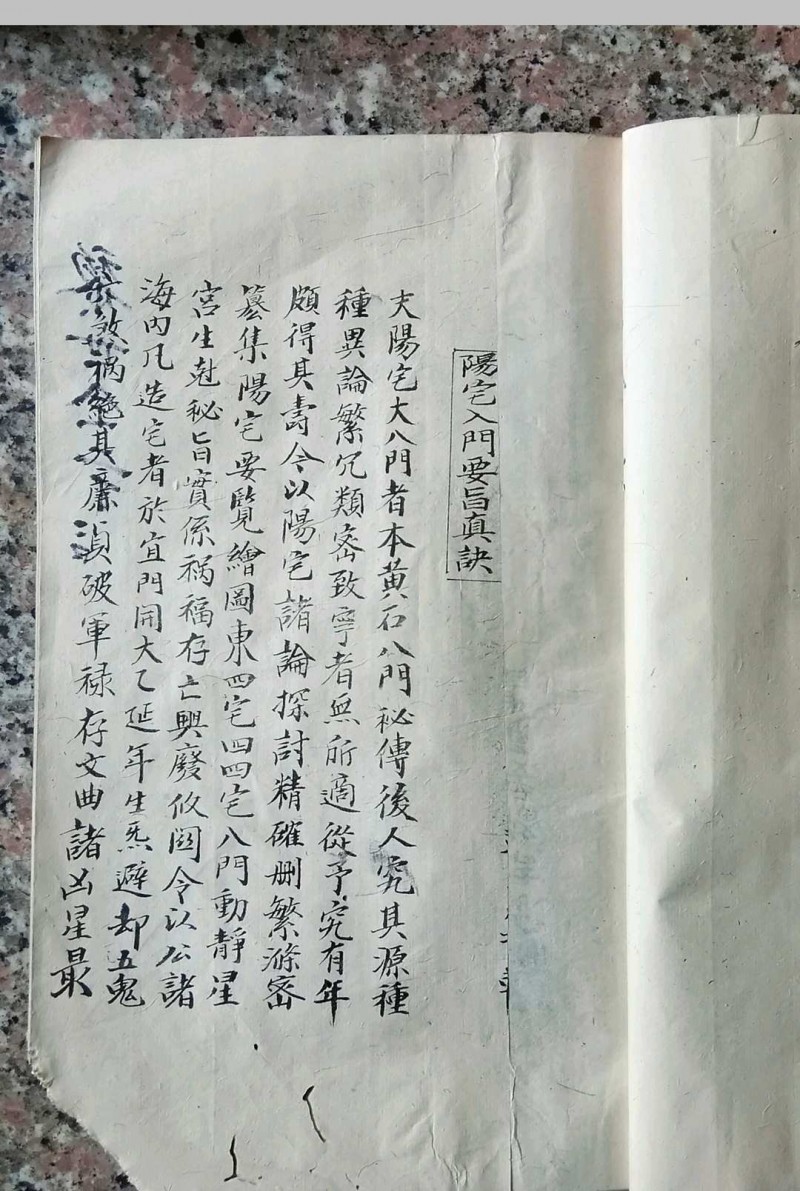 陽宅入門要旨真訣
夫陽宅大八門者本黄石八門秘傳後人究其源種
種異論繁冗類密致寧者無所適從予究有年
頗得其壽今以陽宅諸論探討精確刪繁滌密
纂集陽宅要覽繪圖東四宅四四宅八門動靜星
宮生尅秘旨實係禍福存亡興廢攸関今以公諸
海內凡造宅者於宜門開大乙延年生炁避却五鬼
煞禍絶其廉湞破軍禄存文曲諸凶星最